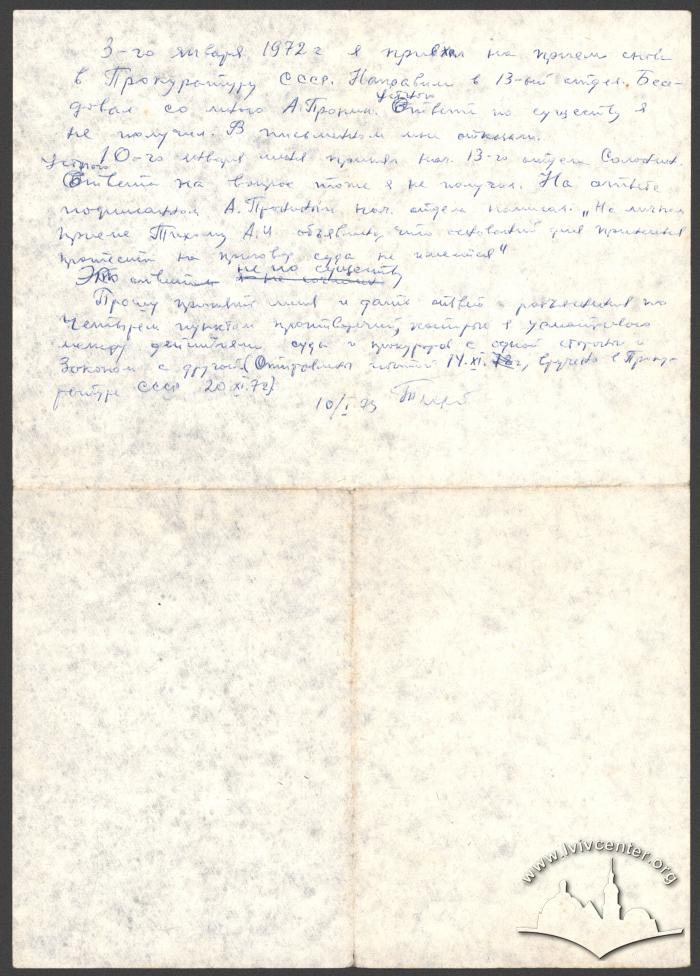 3-го января 1972 г я приехал на прием снова
в Прокуратуру СССР. Направили в 13-ый отдел. Бесе-
довал со мною А. Пронин. Устной Ответа по существу я
не получил. В письменном мне отказали.
10-го января меня принял нач. 13-го отдела
Устной Ответа на вопрос тоже я не получил. На ответе
подписанном А. Прониным нач. отдела написал: „На личном
приеме Тихому А.И. объявлено, что оснований для принесения
протеста на приговор суда не имеется"
Это ответ не по существу
Прошу принять меня и дать ответ и разъяснения по
Четырем пунктам противоречий, которые я усматриваю
между действиями суда и прокурора с одной стороны и
Законом с другой (Отправлены мной 14.XI. вручено в Проку-
ратуре СССР 20 XI.72)
10/I 73